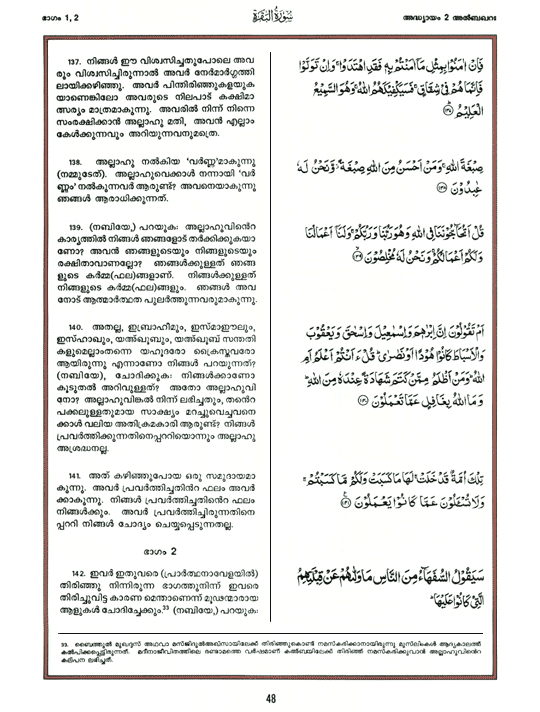 ഭാഗം 1, 2
سُورَةُ البَقَرَة
അദ്ധ്യായം 2 അൽബഖറഃ
137. നിങ്ങൾ ഈ വിശ്വസിച്ചതുപോലെ അവ
രും വിശ്വസിച്ചിരുന്നാൽ അവർ നേർമാർഗ്ഗത്തി
ലായിക്കഴിഞ്ഞു. അവർ പിന്തിരിഞ്ഞുകളയുക
യാണെങ്കിലോ അവരുടെ നിലപാട് കക്ഷിമാ
ത്സര്യം മാത്രമാകുന്നു. അവരിൽ നിന്ന് നിന്നെ
സംരക്ഷിക്കാൻ അല്ലാഹു മതി, അവൻ എല്ലാം
കേൾക്കുന്നവനും അറിയുന്നവനുമത്രെ.
فَإِنْ ءَامَنُوا۟ بِمِثْلِ مَآ ءَامَنتُم بِهِۦ فَقَدِ ٱهْتَدَوا۟ ۖ وَّإِن تَوَلَّوْا۟
فَإِنَّمَا هُمْ فِى شِقَاقٍ ۖ فَسَيَكْفِيكَهُمُ ٱللَّهُ ۚ وَهُوَ ٱلسَّمِيعُ
ٱلْعَلِيمُ ١٣٧
138. അല്ലാഹു നൽകിയ 'വർണ്ണ'മാകുന്നു
(നമ്മുടേത്). അല്ലാഹുവെക്കാൾ നന്നായി 'വർ
ണ്ണം' നൽകുന്നവർ ആരുണ്ട്? അവനെയാകുന്നു
ഞങ്ങൾ ആരാധിക്കുന്നത്.
صِبْغَةَ ٱللَّهِ ۖ وَمَنْ أَحْسَنُ مِنَ ٱللَّهِ صِبْغَةً ۖ وَنَحْنُ لَهُۥ
عَٰبِدُونَ ١٣٨
139. (നബിയേ,) പറയുക: അല്ലാഹുവിൻെറ
കാര്യത്തിൽ നിങ്ങൾ ഞങ്ങളോട് തർക്കിക്കുകയാ
ണോ? അവൻ ഞങ്ങളുടെയും നിങ്ങളുടെയും
രക്ഷിതാവാണല്ലോ? ഞങ്ങൾക്കുള്ളത് ഞങ്ങ
ളുടെ കർമ്മ(ഫല)ങ്ങളാണ്. നിങ്ങൾക്കുള്ളത്
നിങ്ങളുടെ കർമ്മ(ഫല)ങ്ങളും. ഞങ്ങൾ അവ
നോട് ആത്മാർത്ഥത പുലർത്തുന്നവരുമാകുന്നു.
قُلْ أَتُحَآجُّونَنَا فِى ٱللَّهِ وَهُوَ رَبُّنَا وَرَبُّكُمْ وَلَنَآ أَعْمَٰلُنَا
وَلَكُمْ أَعْمَٰلُكُمْ وَنَحْنُ لَهُۥ مُخْلِصُونَ ١٣٩
140. അതല്ല, ഇബ്രാഹീമും, ഇസ്മാഈലും,
ഇസ്ഹാഖും, യഅ്ഖൂബും, യഅ്ഖൂബ് സന്തതി
കളുമെല്ലാംതന്നെ യഹൂദരോ ക്രൈസ്തവരോ
ആയിരുന്നു എന്നാണോ നിങ്ങൾ പറയുന്നത്?
(നബിയേ), ചോദിക്കുക: നിങ്ങൾക്കാണോ
കൂടുതൽ അറിവുള്ളത്? അതോ അല്ലാഹുവി
നോ? അല്ലാഹുവിങ്കൽ നിന്ന് ലഭിച്ചതും, തൻെറ
പക്കലുള്ളതുമായ സാക്ഷ്യം മറച്ചുവെച്ചവനെ
ക്കാൾ വലിയ അതിക്രമകാരി ആരുണ്ട്? നിങ്ങൾ
പ്രവർത്തിക്കുന്നതിനെപ്പററിയൊന്നും അല്ലാഹു
അശ്രദ്ധനല്ല.
أَمْ تَقُولُونَ إِنَّ إِبْرَٰهِۦمَ وَإِسْمَٰعِيلَ وَإِسْحَٰقَ وَيَعْقُوبَ
وَٱلْأَسْبَاطَ كَانُوا۟ هُودًا أَوْ نَصَٰرَىٰ ۗ قُلْ ءَأَنتُمْ أَعْلَمُ أَمِ
ٱللَّهُ ۗ وَمَنْ أَظْلَمُ مِمَّن كَتَمَ شَهَٰدَةً عِندَهُۥ مِنَ ٱللَّهِ ۗ
وَمَا ٱللَّهُ بِغَٰفِلٍ عَمَّا تَعْمَلُونَ ١٤٠
141. അത് കഴിഞ്ഞുപോയ ഒരു സമുദായമാ
കുന്നു. അവർ പ്രവർത്തിച്ചതിൻെറ ഫലം അവർ
ക്കാകുന്നു. നിങ്ങൾ പ്രവർത്തിച്ചതിൻെറ ഫലം
നിങ്ങൾക്കും. അവർ പ്രവർത്തിച്ചിരുന്നതിനെ
പ്പററി നിങ്ങൾ ചോദ്യം ചെയ്യപ്പെടുന്നതല്ല.
تِلْكَ أُمَّةٌ قَدْ خَلَتْ ۖ لَهَا مَا كَسَبَتْ وَلَكُم مَّا كَسَبْتُمْ ۖ
وَلَا تُسْـَٔلُونَ عَمَّا كَانُوا۟ يَعْمَلُونَ ١٤١
ഭാഗം 2
142. ഇവർ ഇതുവരെ (പ്രാർത്ഥനാവേളയിൽ)
തിരിഞ്ഞു നിന്നിരുന്ന ഭാഗത്തുനിന്ന് ഇവരെ
തിരിച്ചുവിട്ട കാരണ മെന്താണെന്ന് മൂഢന്മാരായ
ആളുകൾ ചോദിച്ചേക്കും.³³ (നബിയേ,) പറയുക:
سَيَقُولُ ٱلسُّفَهَآءُ مِنَ ٱلنَّاسِ مَا وَلَّىٰهُمْ عَن قِبْلَتِهِمُ
ٱلَّتِى كَانُوا۟ عَلَيْهَا ۚ
33. ബൈത്തുൽ മുഖദ്ദസ് അഥവാ മസ്ജിദുൽഅഖ്സായിലേക്ക് തിരിഞ്ഞുകൊണ്ട് നമസ്കരിക്കാനായിരുന്നു മുസ്ലിംകൾ ആദ്യകാലത്ത്
കൽപിക്കപ്പെട്ടിരുന്നത്. മദീനാജീവിതത്തിലെ രണ്ടാമത്തെ വർഷമാണ് കഅ്ബയിലേക്ക് തിരിഞ്ഞ് നമസ്കരിക്കുവാൻ അല്ലാഹുവിൻെറ
കല്പന ലഭിച്ചത്.
48